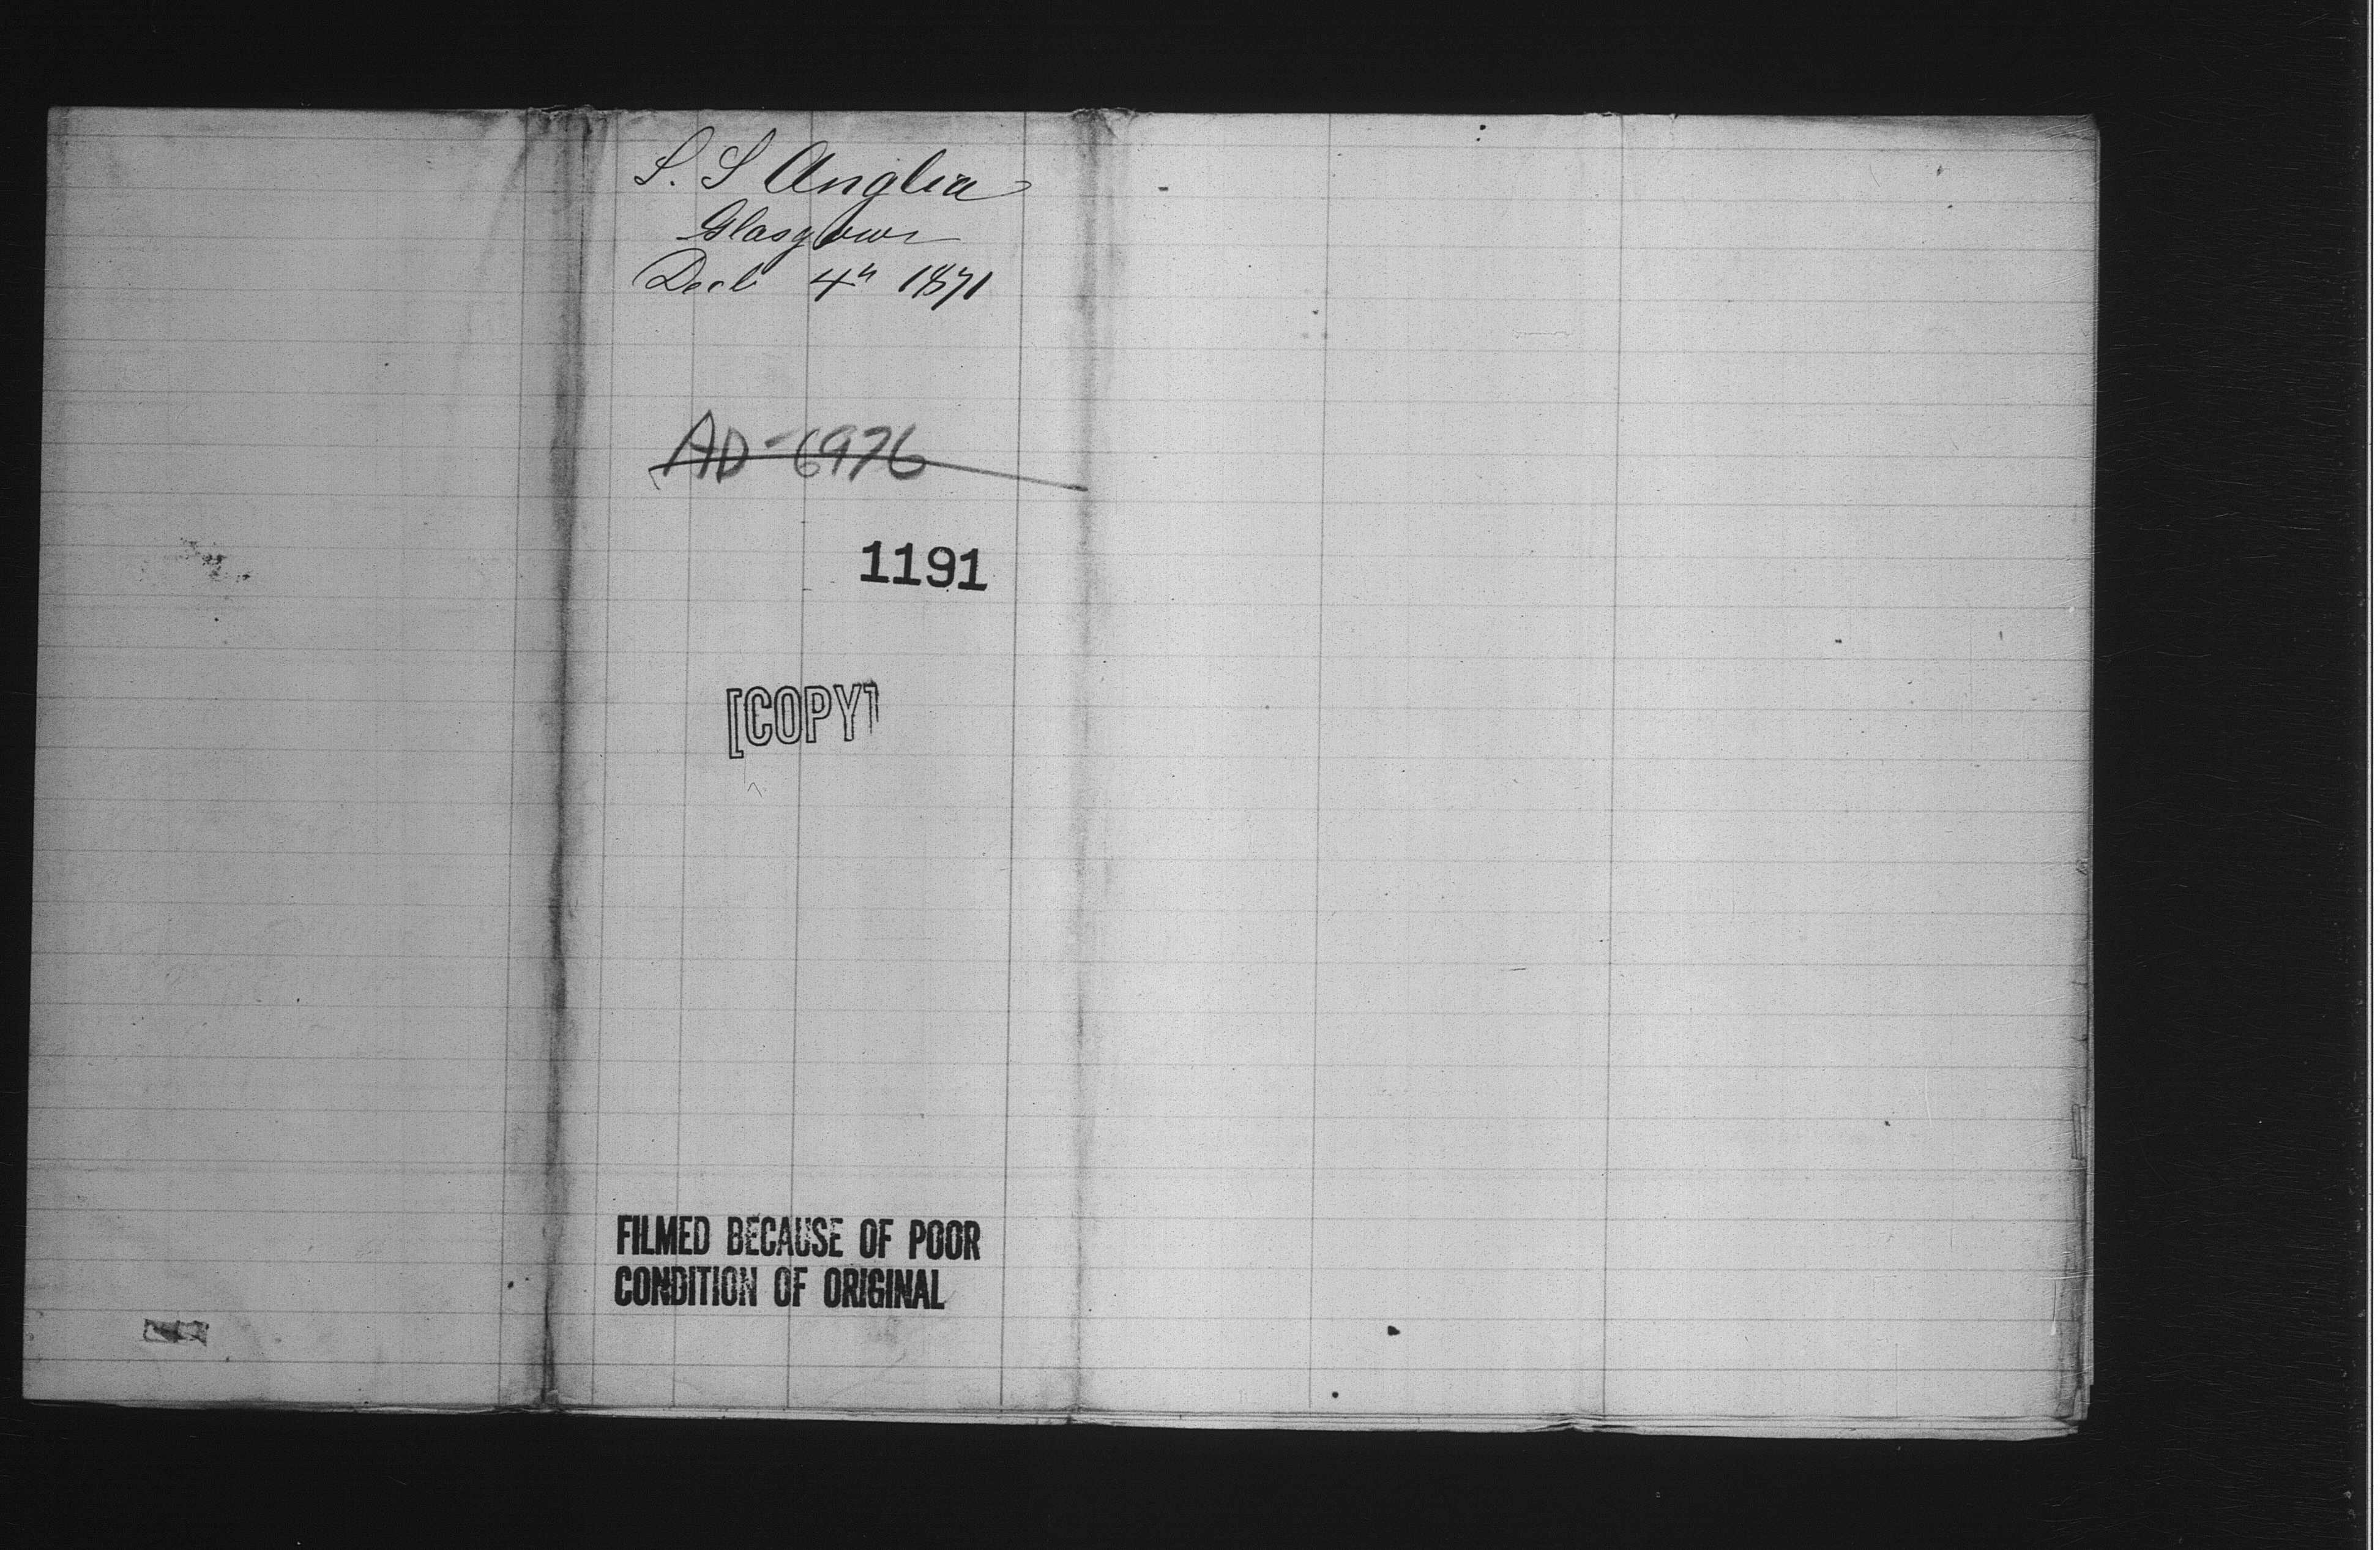 S. S Anglia
Glasgow
Dec 4th 1871
AD-6976
1191
[COPY]
FILMED BECAUSE OF POOR
CONDITION OF ORIGINAL